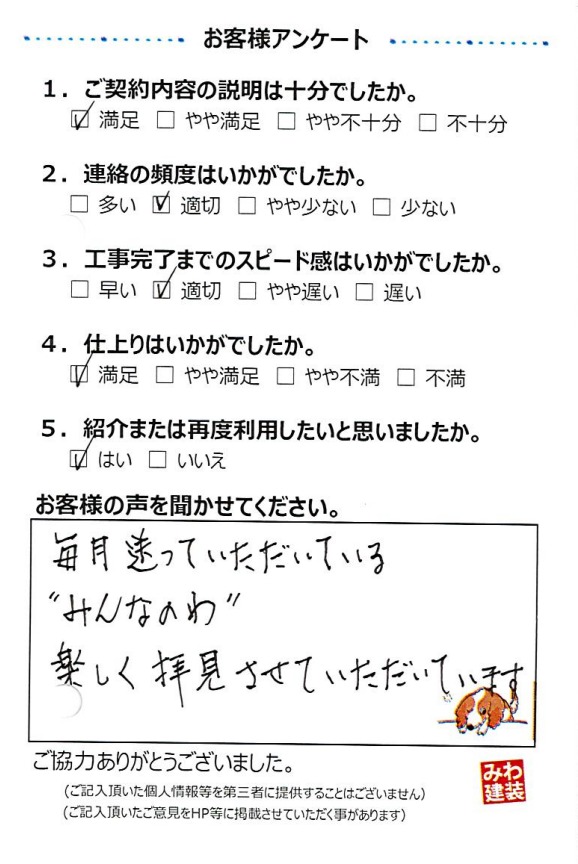 お客様アンケート
1．ご契約内容の説明は十分でしたか。
☑ 満足 □ やや満足 □ やや不十分 □ 不十分
2．連絡の頻度はいかがでしたか。
□ 多い ☑ 適切 □ やや少ない □ 少ない
3．工事完了までのスピード感はいかがでしたか。
□ 早い ☑ 適切 □ やや遅い □ 遅い
4．仕上りはいかがでしたか。
☑ 満足 □ やや満足 □ やや不満 □ 不満
5．紹介または再度利用したいと思いましたか。
☑ はい □ いいえ
お客様の声を聞かせてください。
毎月送っていただいている
"みんなのわ"
楽しく拝見させていただいています
ご協力ありがとうございました。
（ご記入頂いた個人情報等を第三者に提供することはございません）
（ご記入頂いたご意見をHP等に掲載させていただく事があります）
みわ
建装